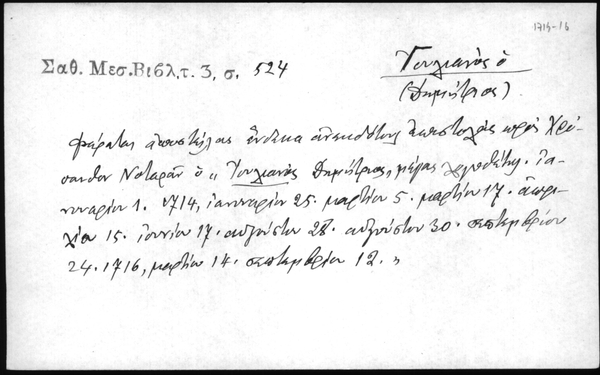 1714-16
Σαθ. Μεσ. Βιβλ. τ. 3, σ. 524
Ἰουλιανὸς ὁ
(Δημήτριος).
Φέρεται ἀποστείλας ἕνδεκα ἀνεκδότους ἐπιστολὰς πρὸς Χρύ-
σανθον Νοταρᾶν ὁ „ Ἰουλιανὸς Δημήτριος, μέγας λογοθέτης. ἰα-
νουαρίου 1. 1714, ἰανουαρίου 25. μαρτίου 5. μαρτίου 17. ἀπρι-
λίου 15. ἰουνίου 17. αὐγούστου 28. αὐγούστου 30. σεπτεμβρίου
24. 1716, μαρτίου 14. σεπτεμβρίου 12. „